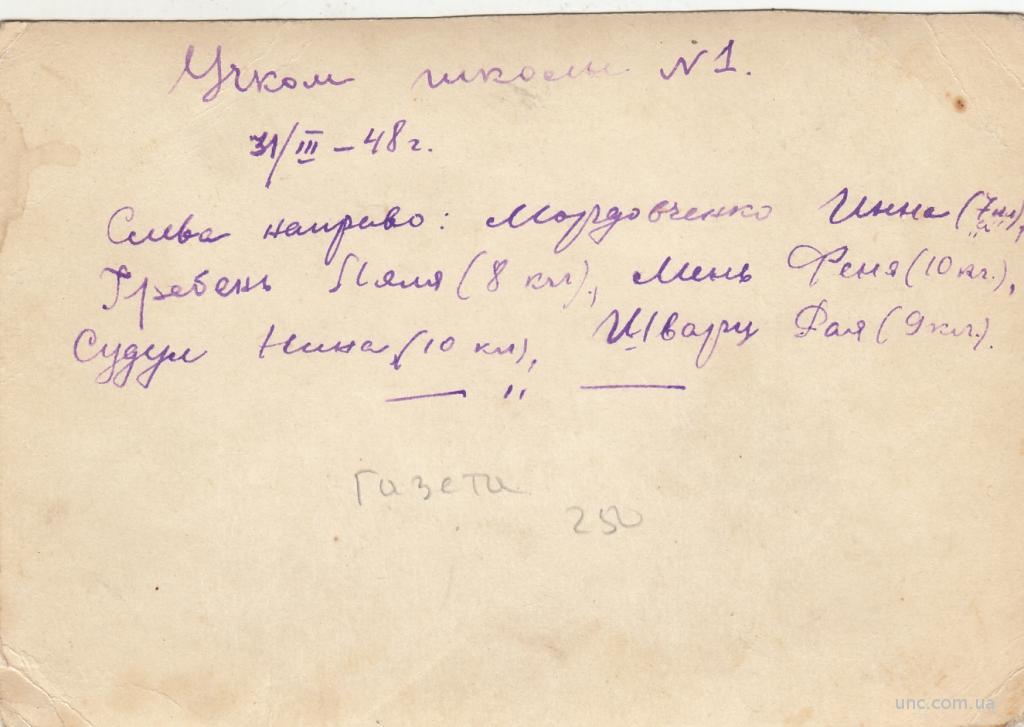 Учком школы N1.
31/III – 48 г.
Слева направо: Мордовченко Инна (7 кл),
"а"
Гребень Ляля (8 кл), Мень Феня (10 кл.),
Судул Нина (10 кл), Шварц Фая (9 кл).
— " —
Газета
250
unc.com.ua